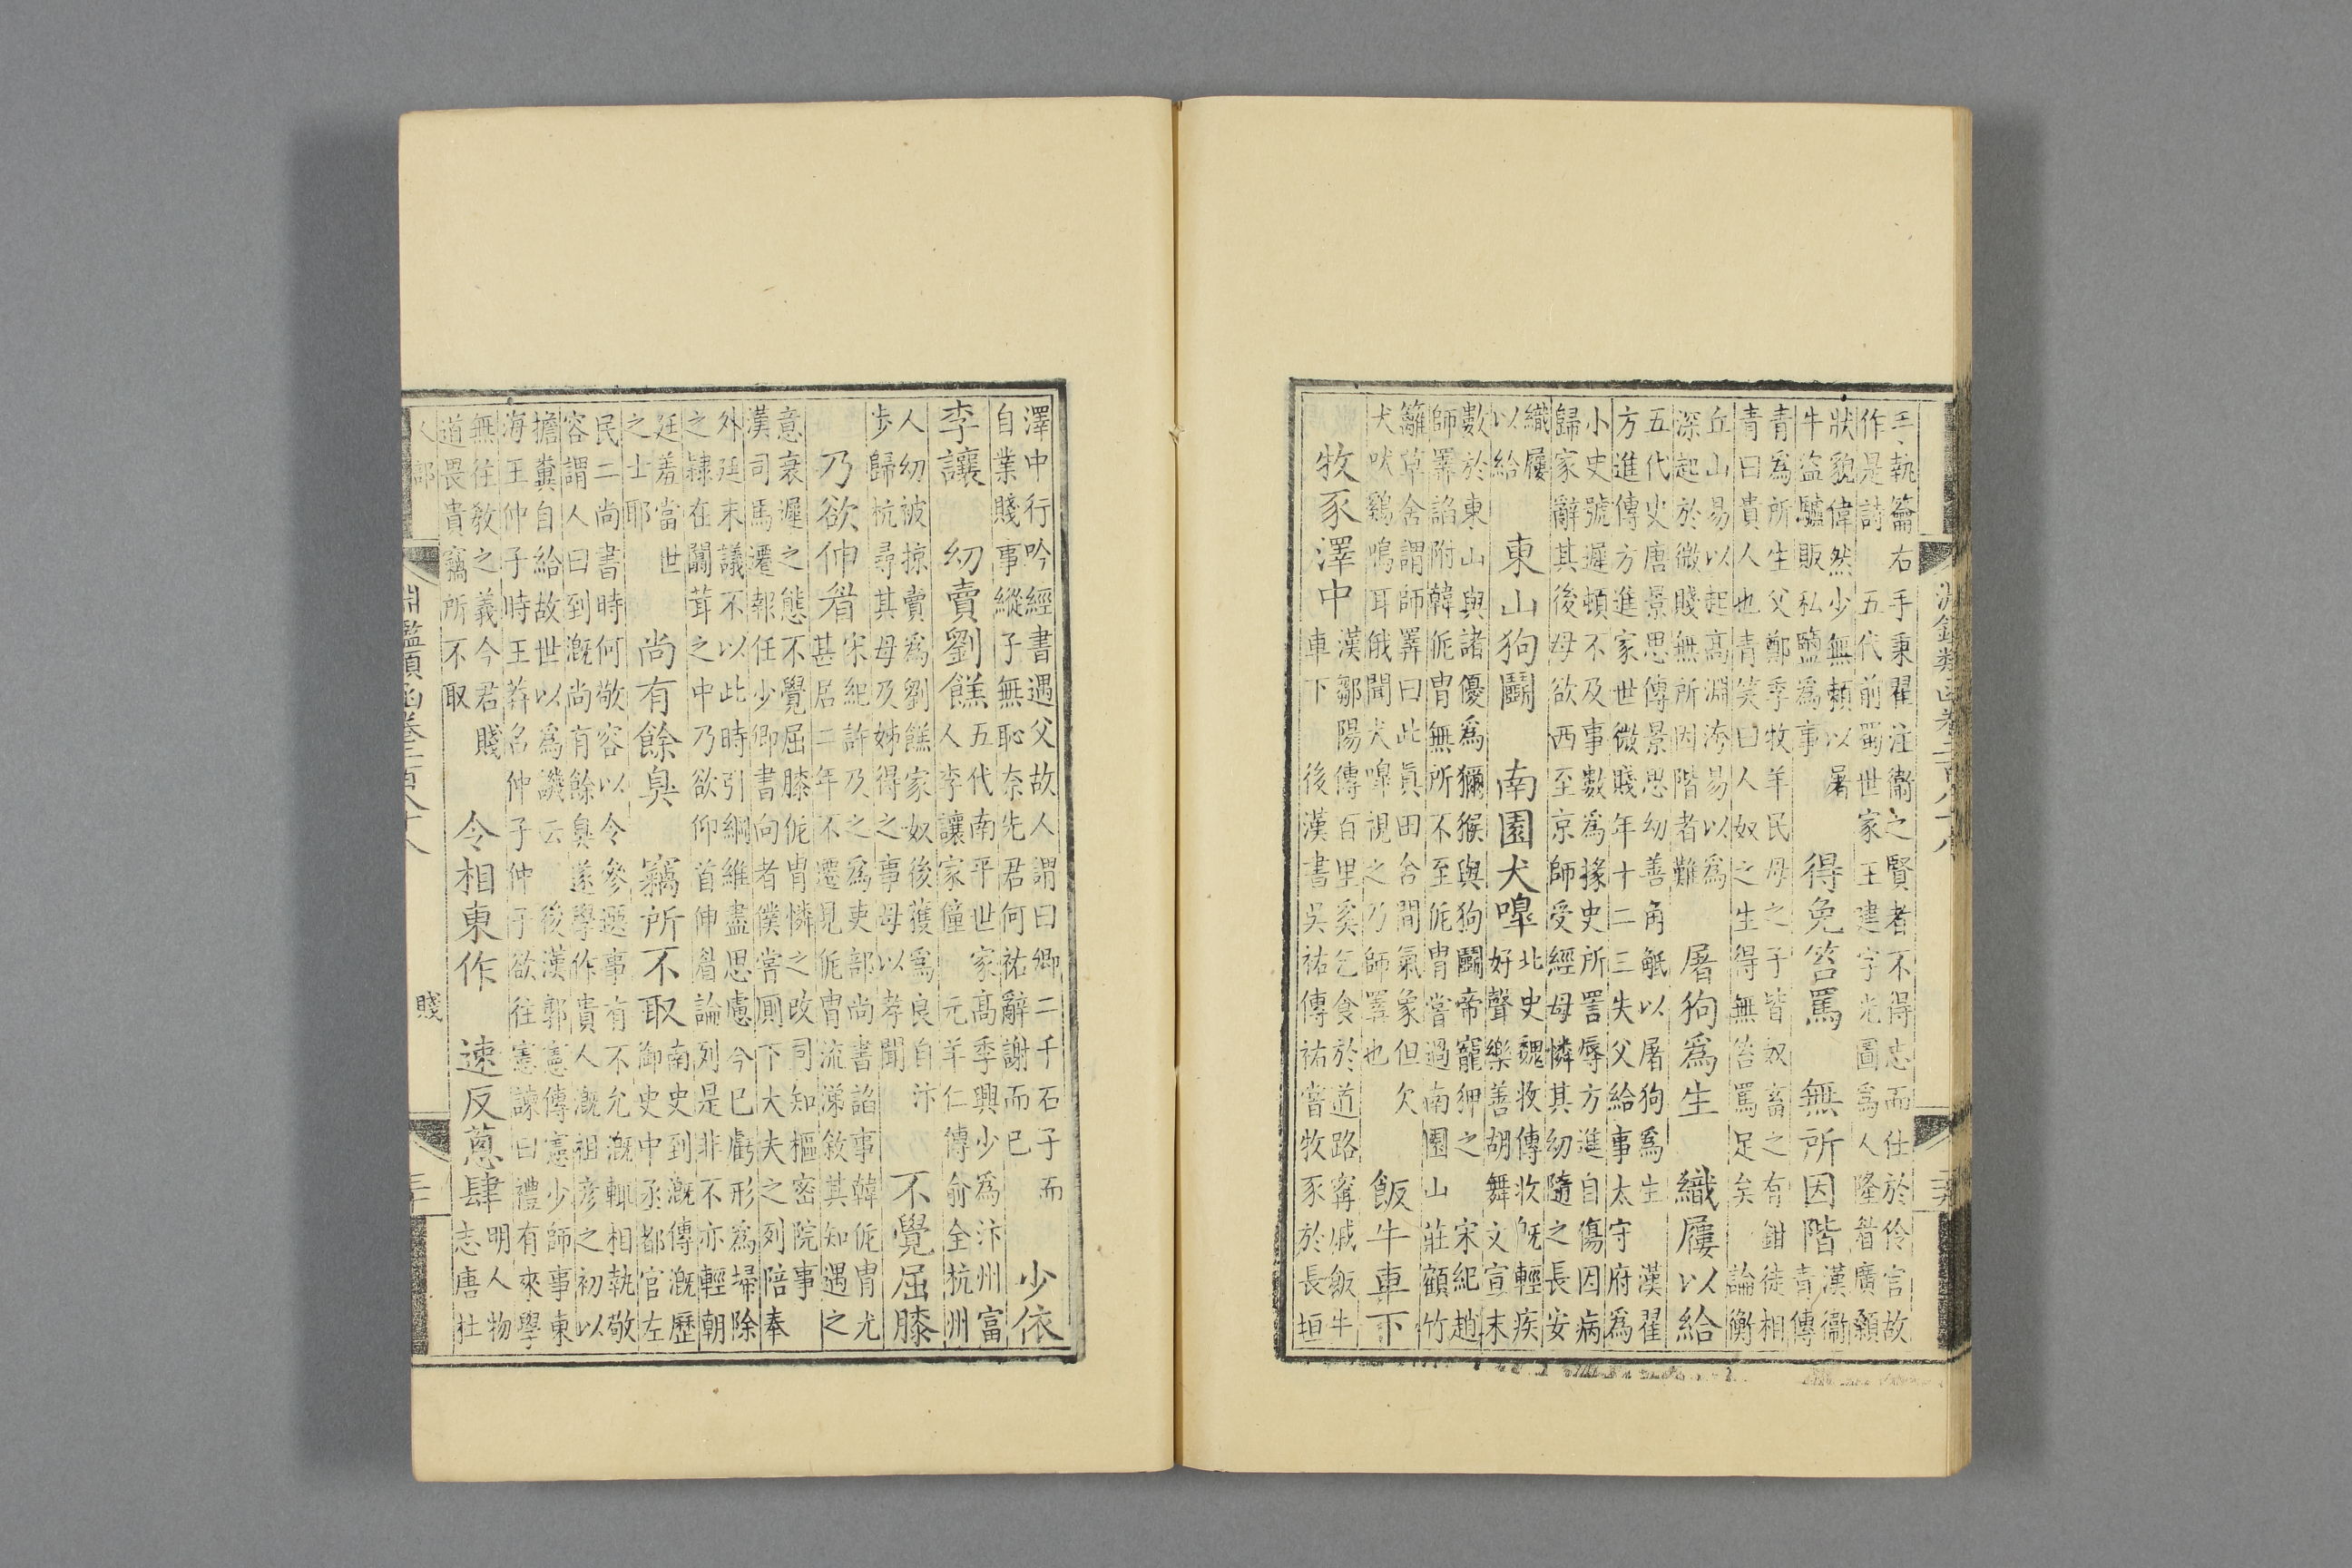 淵鑑類函卷二百八十八
手執籥右手秉翟注衞之賢者不得志而仕於伶官故
作是詩 五代前蜀世家王建字光圖爲人隆眉廣顙
狀貌偉然少無賴以屠
牛盜驢販私鹽爲事
得免笞罵 無所因階
漢衞
青傳
青爲所生父鄭季牧羊民母之子皆奴畜之有鉗徒相
青曰貴人也青笑曰人奴之生得無笞罵足矣 論衡
丘山易以起高淵洿易以爲
深起於微賤無所因階者難
屠狗爲生 織屨以給
五代史唐景思傳景思幼善角觝以屠狗爲生 漢翟
方進傳方進家世微賤年十二三失父給事太守府爲
小史號遲頓不及事數爲掾史所詈辱方進自傷因病
歸家辭其後母欲西至京師受經母憐其幼隨之長安
織屨
以給
東山狗鬭 南園犬嘷
北史魏收傳收旣輕疾
好聲樂善胡舞文宣末
數於東山與諸優爲獼猴與狗鬭帝寵狎之 宋紀趙
師睪諂附韓侂胄無所不至侂胄嘗過南園山莊顧竹
籬草舍謂師睪曰此眞田舍間氣象但欠
犬吠鷄鳴耳俄聞犬嘷視之乃師睪也
飯牛車下
牧豕澤中
漢鄒陽傳百里奚乞食於道路甯戚飯牛
車下 後漢書吳祐傳祐嘗牧豕於長垣
澤中行吟經書遇父故人謂曰卿二千石子而
自業賤事縱子無恥奈先君何祐辭謝而已
少依
李讓 幼賣劉餻
五代南平世家高季興少爲汴州富
人李讓家僮 元羊仁傳俞全杭州
人幼被掠賣爲劉餻家奴後獲爲良自汴
步歸杭尋其母乃姊得之事母以孝聞
不覺屈膝
乃欲伸眉
宋紀許及之爲吏部尚書諂事韓侂胄尤
甚居二年不遷見侂胄流涕敘其知遇之
意衰遲之態不覺屈膝侂胄憐之改同知樞密院事
漢司馬遷報任少卿書向者僕嘗厠下大夫之列陪奉
外廷末議不以此時引綱維盡思慮今已虧形爲埽除
之隸在闒茸之中乃欲仰首伸眉論列是非不亦輕朝
廷羞當世
之士耶
尚有餘臭 竊所不取
南史到漑傳漑歷
御史中丞都官左
民二尚書時何敬容以令參選事有不允漑輒相執敬
容謂人曰到漑尚有餘臭遂學作貴人漑祖彦之初以
擔糞自給故世以爲譏云 後漢郭憲傳憲少師事東
海王仲子時王莽名仲子仲子欲往憲諫曰禮有來學
無往敎之義今君賤
道畏貴竊所不取
令相東作 速反蔥肆
明人物
志唐杜
淵鑑類函卷二百八十八
賤
三十